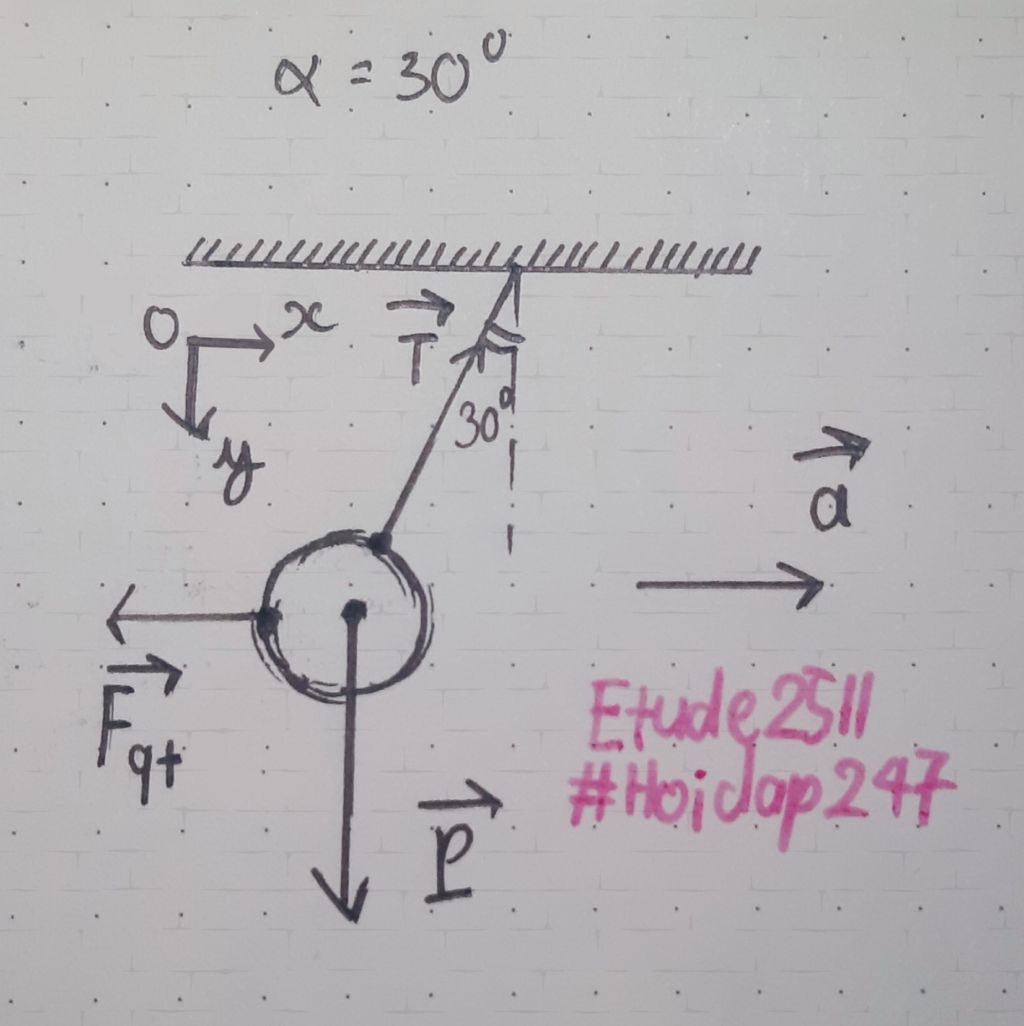 α = 30⁰
O x
y
T
30⁰
a
F_qt
P
Etude2511
#Hoidap247